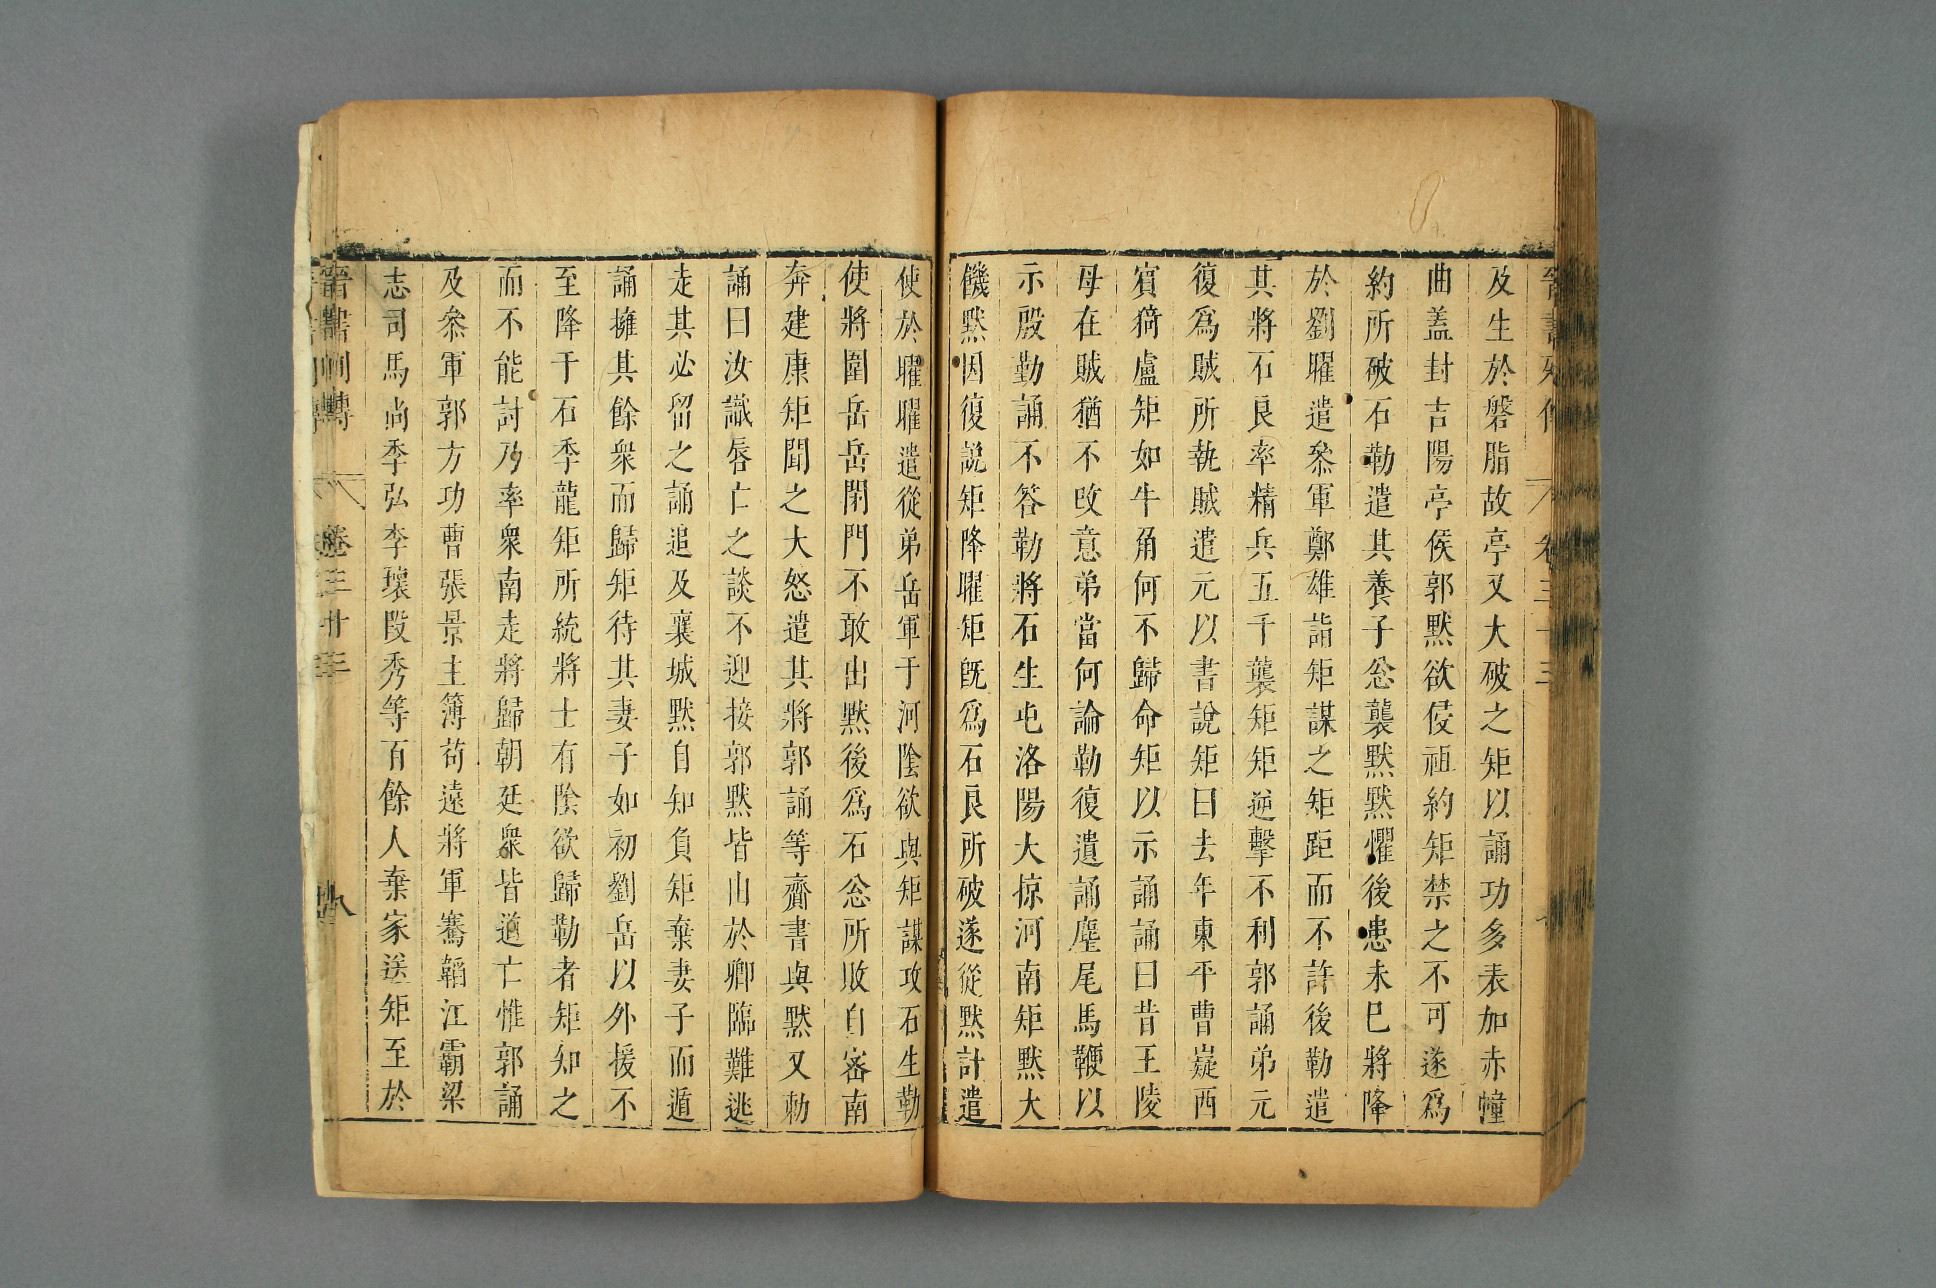 及生於磐脂故亭又大破之矩以誦功多表加赤幢
曲蓋封吉陽亭侯郭默欲侵祖約矩禁之不可遂爲
約所破石勒遣其養子忿襲默默懼後患未已將降
於劉曜遣叅軍鄭雄詣矩謀之矩距而不許後勒遣
其將石良率精兵五千襲矩矩逆擊不利郭誦弟元
復爲賊所執賊遣元以書說矩曰去年東平曹嶷西
賓猗盧矩如牛角何不歸命矩以示誦誦曰昔王陵
母在賊猶不改意弟當何論勒復遺誦麈尾馬鞭以
示殷勤誦不答勒將石生屯洛陽大掠河南矩默大
饑默因復説矩降曜矩旣爲石良所破遂從默計遣
使於曜曜遣從弟岳軍于河陰欲與矩謀攻石生勒
使將圍岳岳閉門不敢出默後爲石忿所敗自密南
奔建康矩聞之大怒遣其將郭誦等齎書與默又勑
誦曰汝識唇亡之談不迎接郭默皆由於卿臨難逃
走其必留之誦追及襄城默自知負矩棄妻子而遁
誦擁其餘衆而歸矩待其妻子如初劉岳以外援不
至降于石季龍矩所統將士有陰欲歸勒者矩知之
而不能討乃率衆南走將歸朝廷衆皆道亡惟郭誦
及叅軍郭方功曹張景主簿苟遠將軍騫韜江霸梁
志司馬尚季弘李瓌段秀等百餘人棄家送矩至於
晉書列傳 卷三十三 八